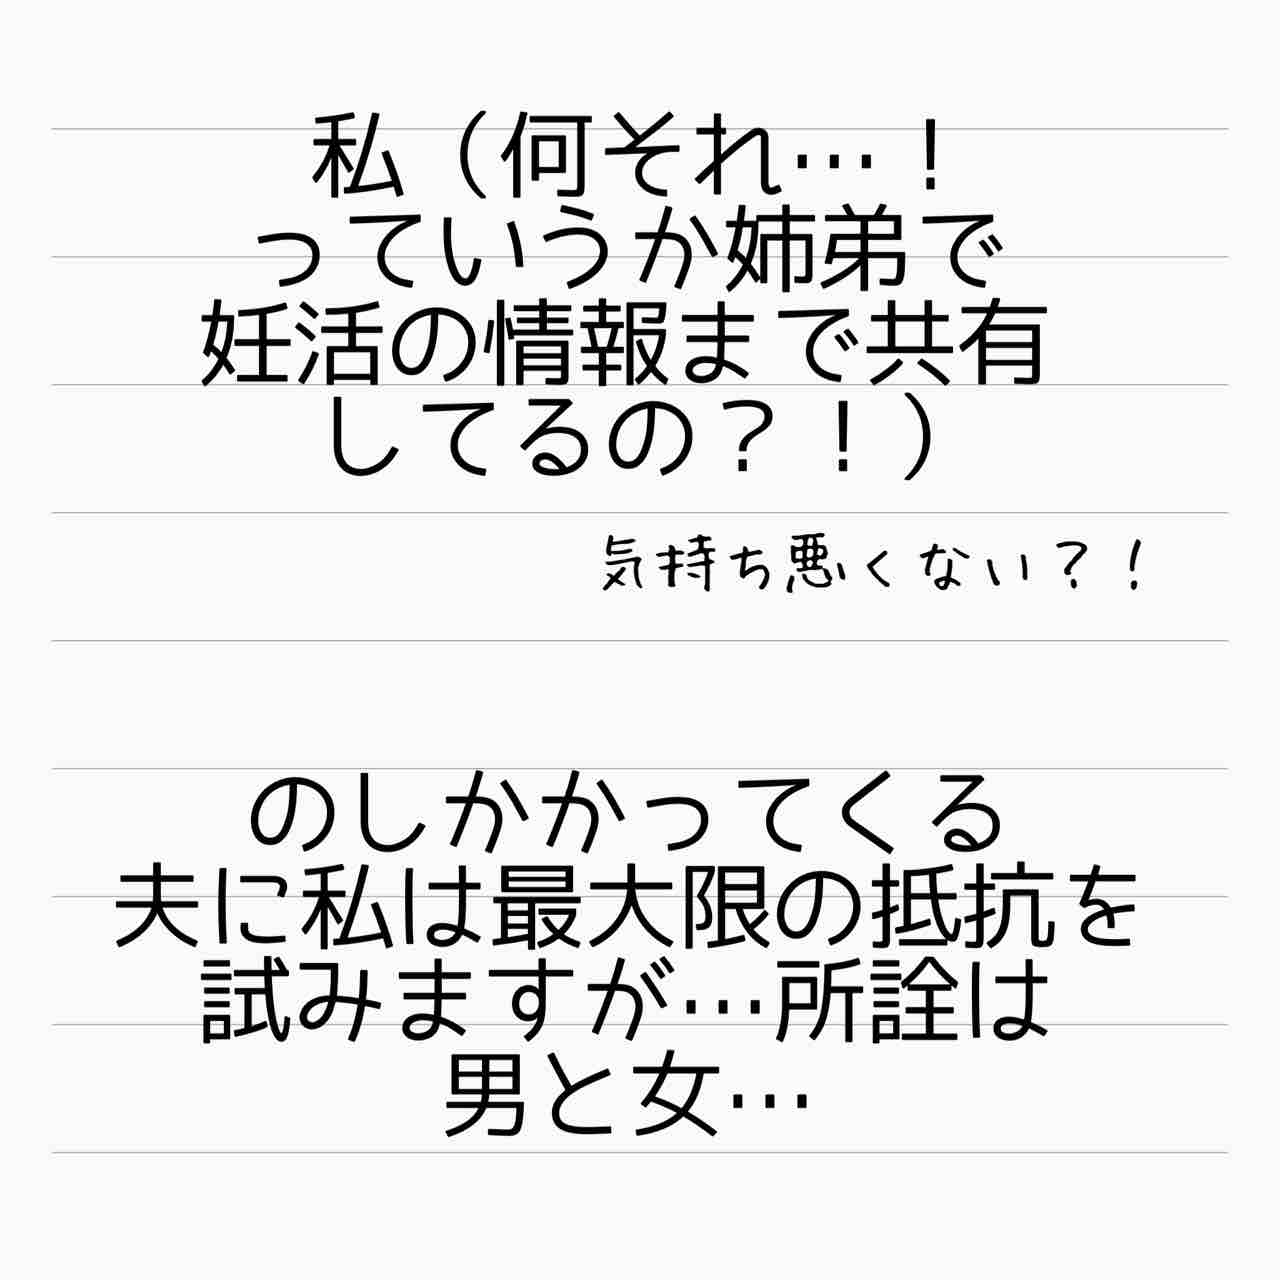 私（何それ…！
っていうか姉弟で
妊活の情報まで共有
してるの？！）
気持ち悪くない？！
のしかかってくる
夫に私は最大限の抵抗を
試みますが…所詮は
男と女…